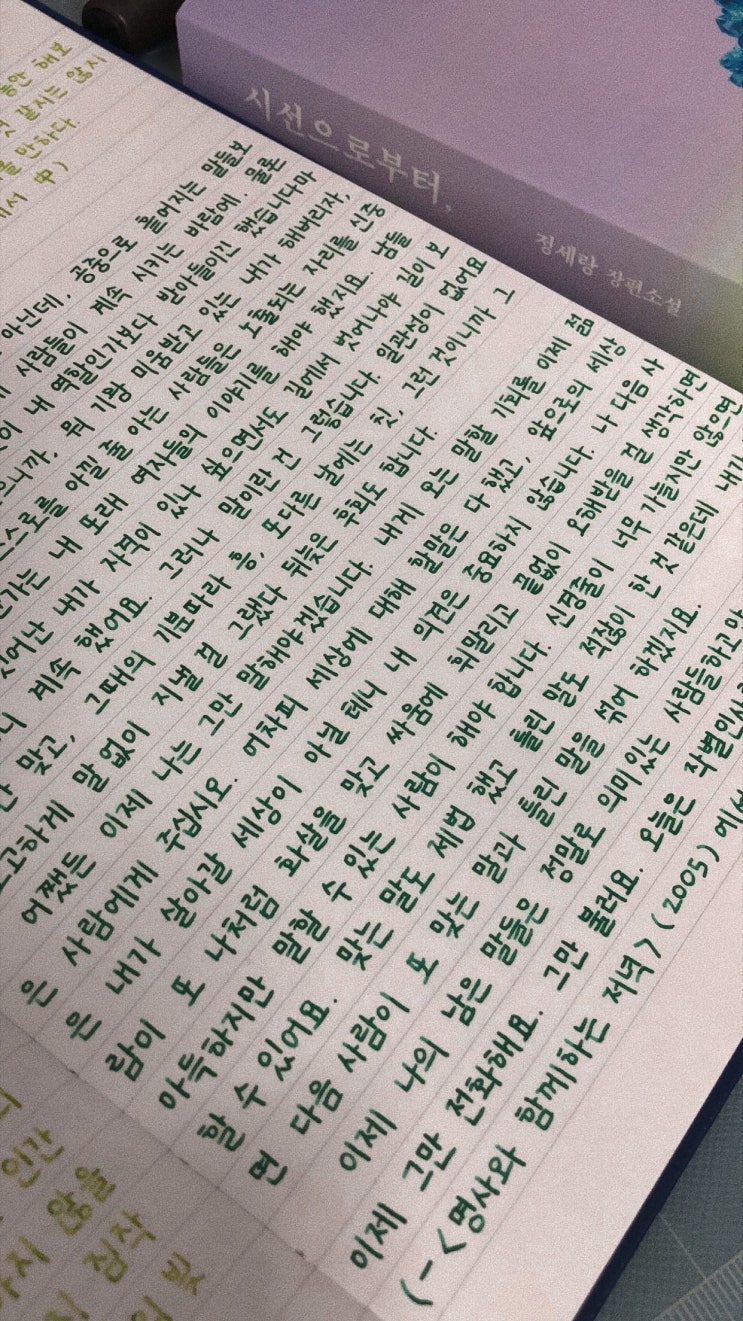 동안 해보
것 같지는 않지
볼 만하다.
中)
시선으로부터,
정세랑 장편소설
아닌데, 공중으로 흩어지는 말들보
사람들이 계속 시키는 바람에. 물론
이 내 역할인가보다 받아들이긴 했습니다마
으니까, 뭐 기왕 미움받고 있는 내가 해버리자,
스스로를 아낄 줄 아는 사람들은 노출되는 자리를 신중
가는 내 또래 여자들의 이야기를 해야 했지요. 남들
어난 내가 자격이 있나 싶으면서도 길에서 벗어나야 길이 보
계속 했어요. 그러나 말이란 건 그렇습니다. 일관성이 없어요
맞고, 그때의 기분따라 흥, 또다른 날에는 칫, 그런 것이니까 그
고고하게 말 없이 지낼 걸 그랬다 뒤늦은 후회도 합니다.
어쨌든 이제 나는 그만 말해야겠습니다. 내게 오는 말할 기회를 이제 젊
은 사람에게 주십시오. 어차피 세상에 대해 할말은 다 했고, 앞으로의 세상
은 내가 살아갈 세상이 아닐 테니 내 의견은 중요하지 않습니다. 나 다음 사
람이 또 나처럼 화살을 맞고 싸움에 휘말리고 끝없이 오해받을 걸 생각하면
아득하지만 말할 수 있는 사람이 해야 합니다. 신경줄이 너무 가늘지만 않으면
할 수 있어요. 맞는 말도 제법 했고 틀린 말도 적잖이 한 것 같은데 내가
면 다음 사람이 또 맞는 말과 틀린 말을 섞어 하겠지요.
이제 나의 남은 말들은 정말로 의미있는 사람들하고만
이제 그만 전화해요. 그만 불러요. 오늘은 작별인사
(-<명사와 함께하는 저녁>(2005) 에서
인간
않을
짐작
빛